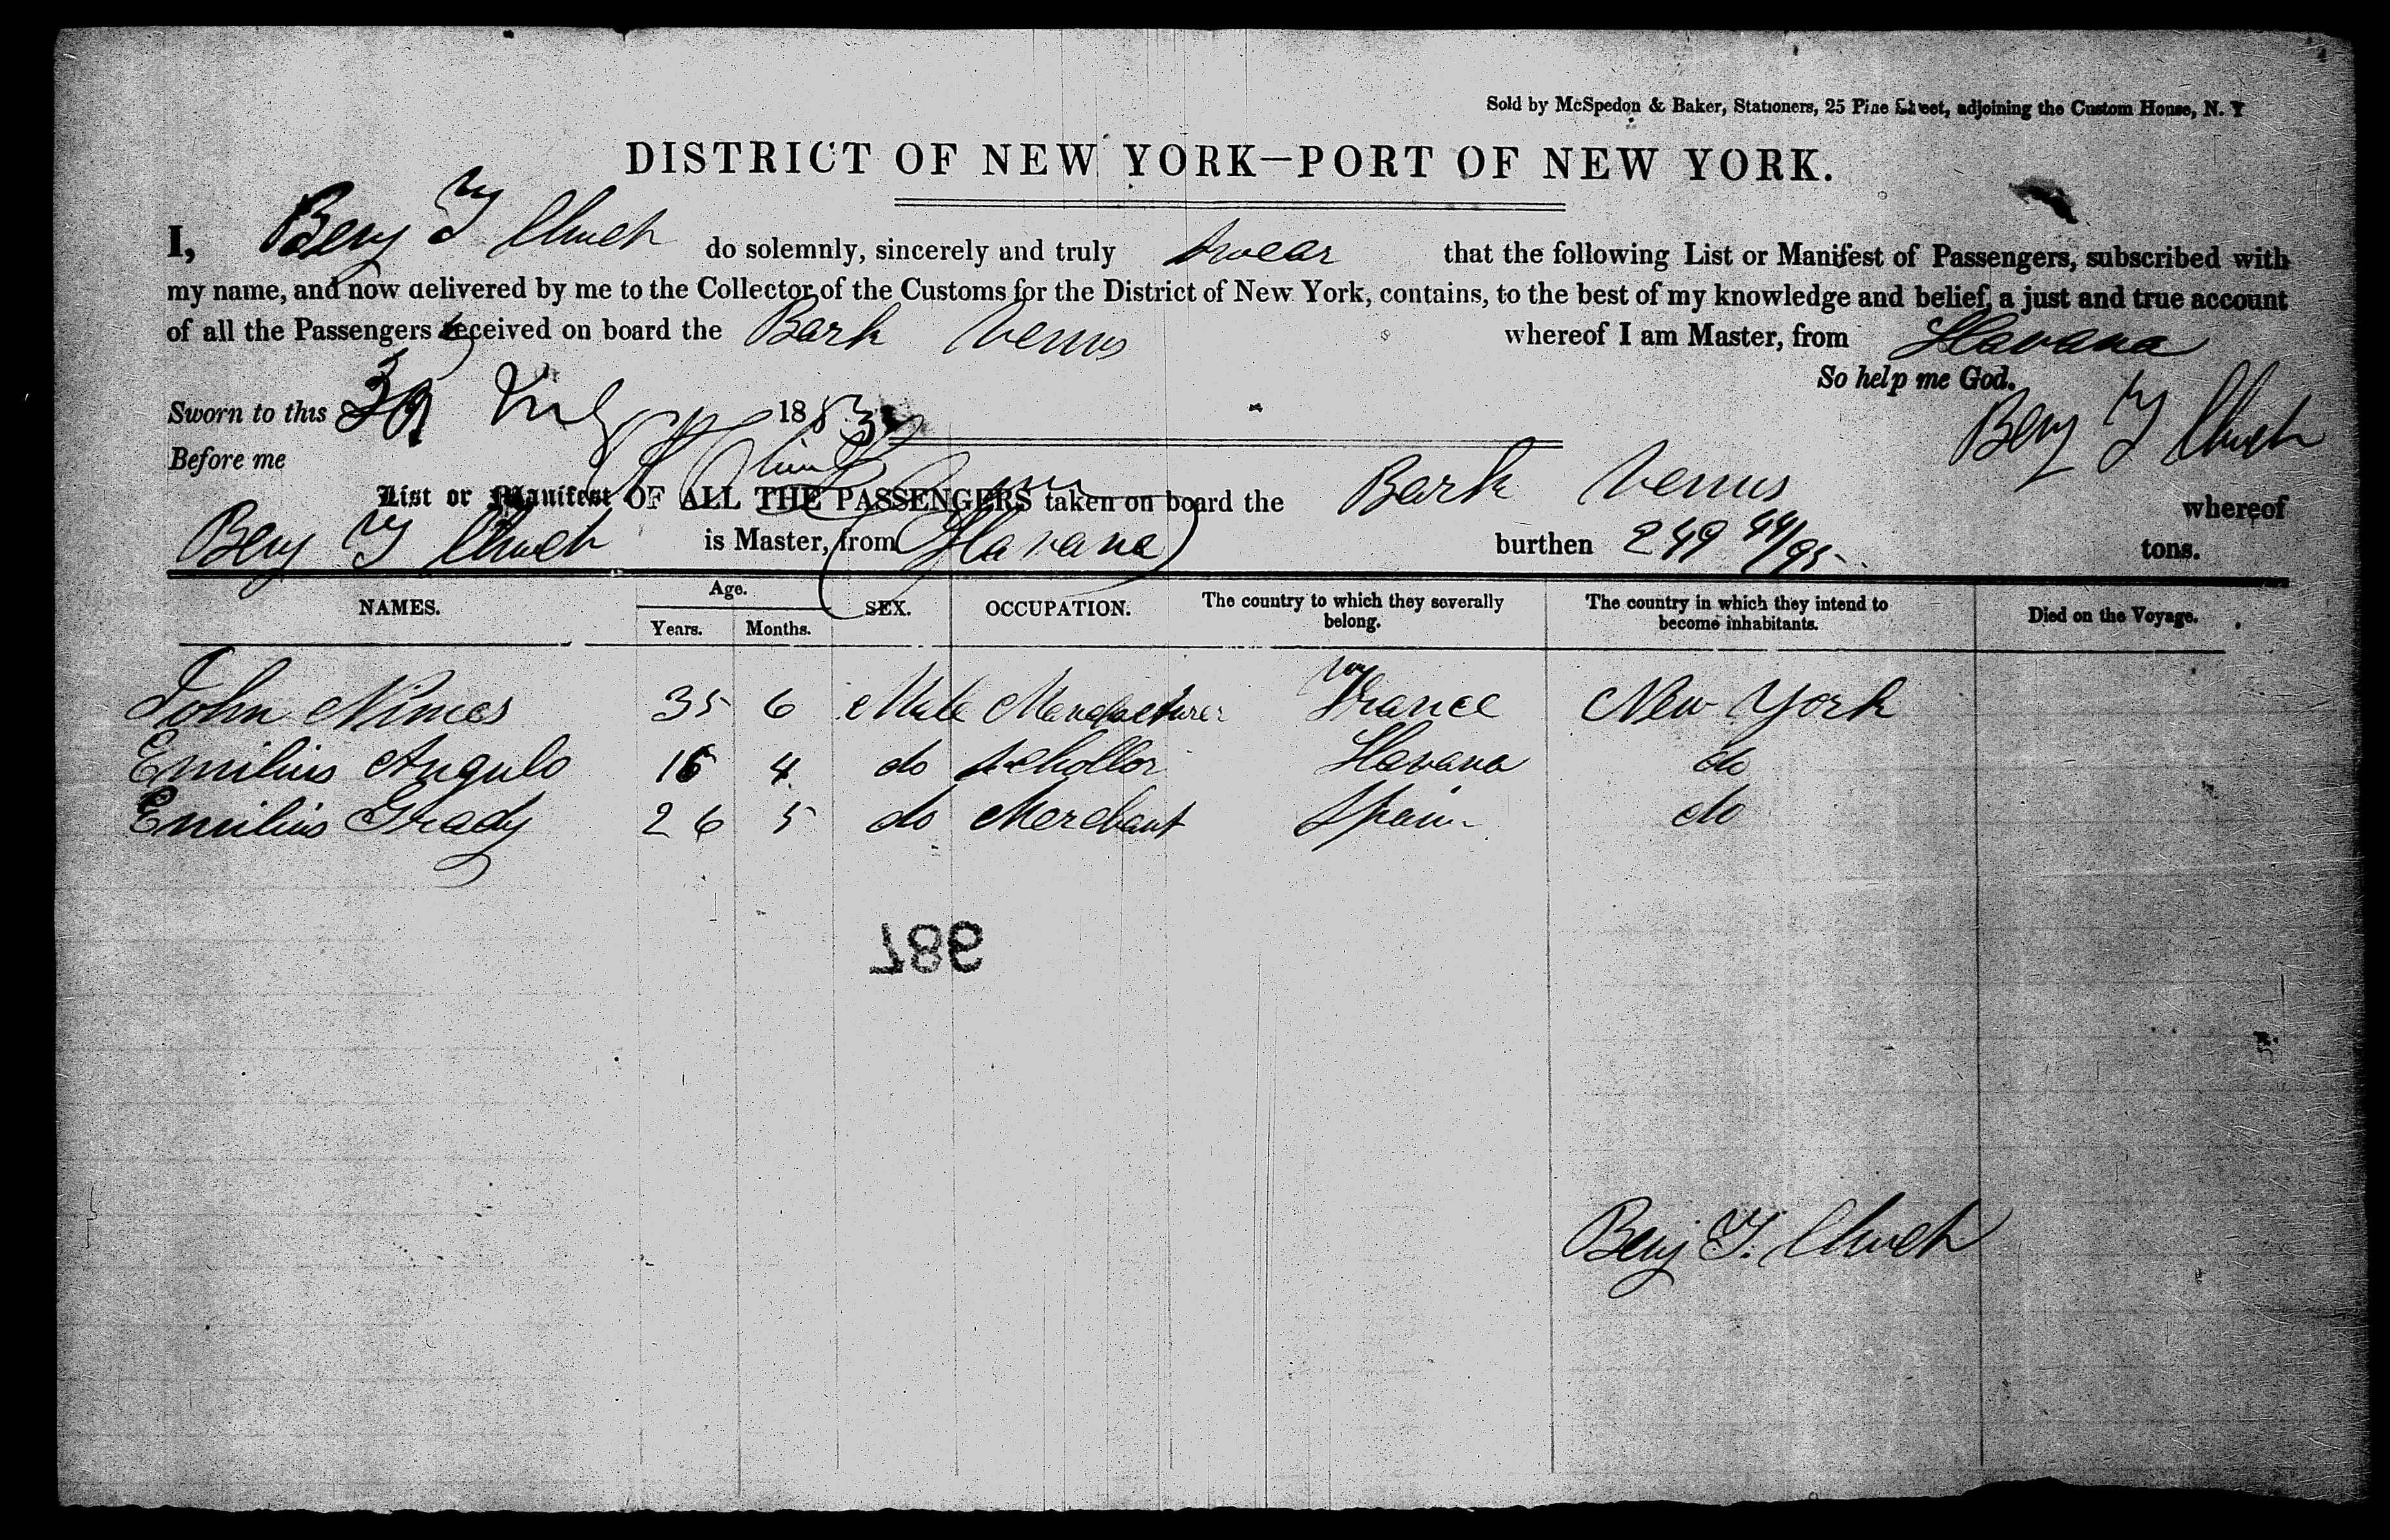 Sold by McSpedon & Baker, Stationers, 25 Pine Street, adjoining the Custom House, N. Y
DISTRICT OF NEW YORK—PORT OF NEW YORK.
I, Benj F Church do solemnly, sincerely and truly swear that the following List or Manifest of Passengers, subscribed with
my name, and now delivered by me to the Collector of the Customs for the District of New York, contains, to the best of my knowledge and belief, a just and true account
of all the Passengers received on board the Bark Venus whereof I am Master, from Havana
So help me God.
Sworn to this 1853 Benj F Church
Before me
List or Manifest OF ALL THE PASSENGERS taken on board the Bark Venus whereof
Benj F Church is Master, from Havana burthen 249 44/95 tons.
NAMES. Age. Years. Months. SEX. OCCUPATION. The country to which they severally belong. The country in which they intend to become inhabitants. Died on the Voyage.
John Nimes 35 6 Male Manufacturer France New York
Emilius Angulo 16 4 do schollor Havana do
Emilius Grady 26 5 do Merchant Spain do
987
Benj F. Church